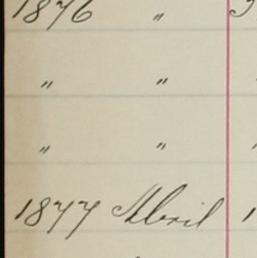 1876 "
" "
" "
1877 Abril